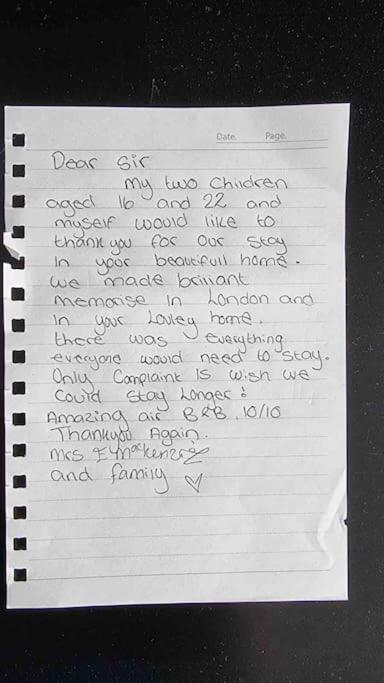 Date. Page.
Dear Sir
My two Children
aged 16 and 22 and
myself would like to
thank you for our stay
In your beautifull home.
we made brilliant
memorise In London and
In your Lovley home.
there was everything
everyone would need to stay.
Only Complaint IS wish we
Could stay Longer!
Amazing air B&B. 10/10
Thankyou Again.
Mrs E Mackenzie
and family ♡